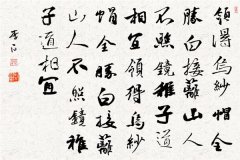 領得烏紗帽全
勝白接蘺山人
不照鏡稚子道
相宜領得烏紗
帽全勝白接蘺
山人不照鏡稚
子道相宜